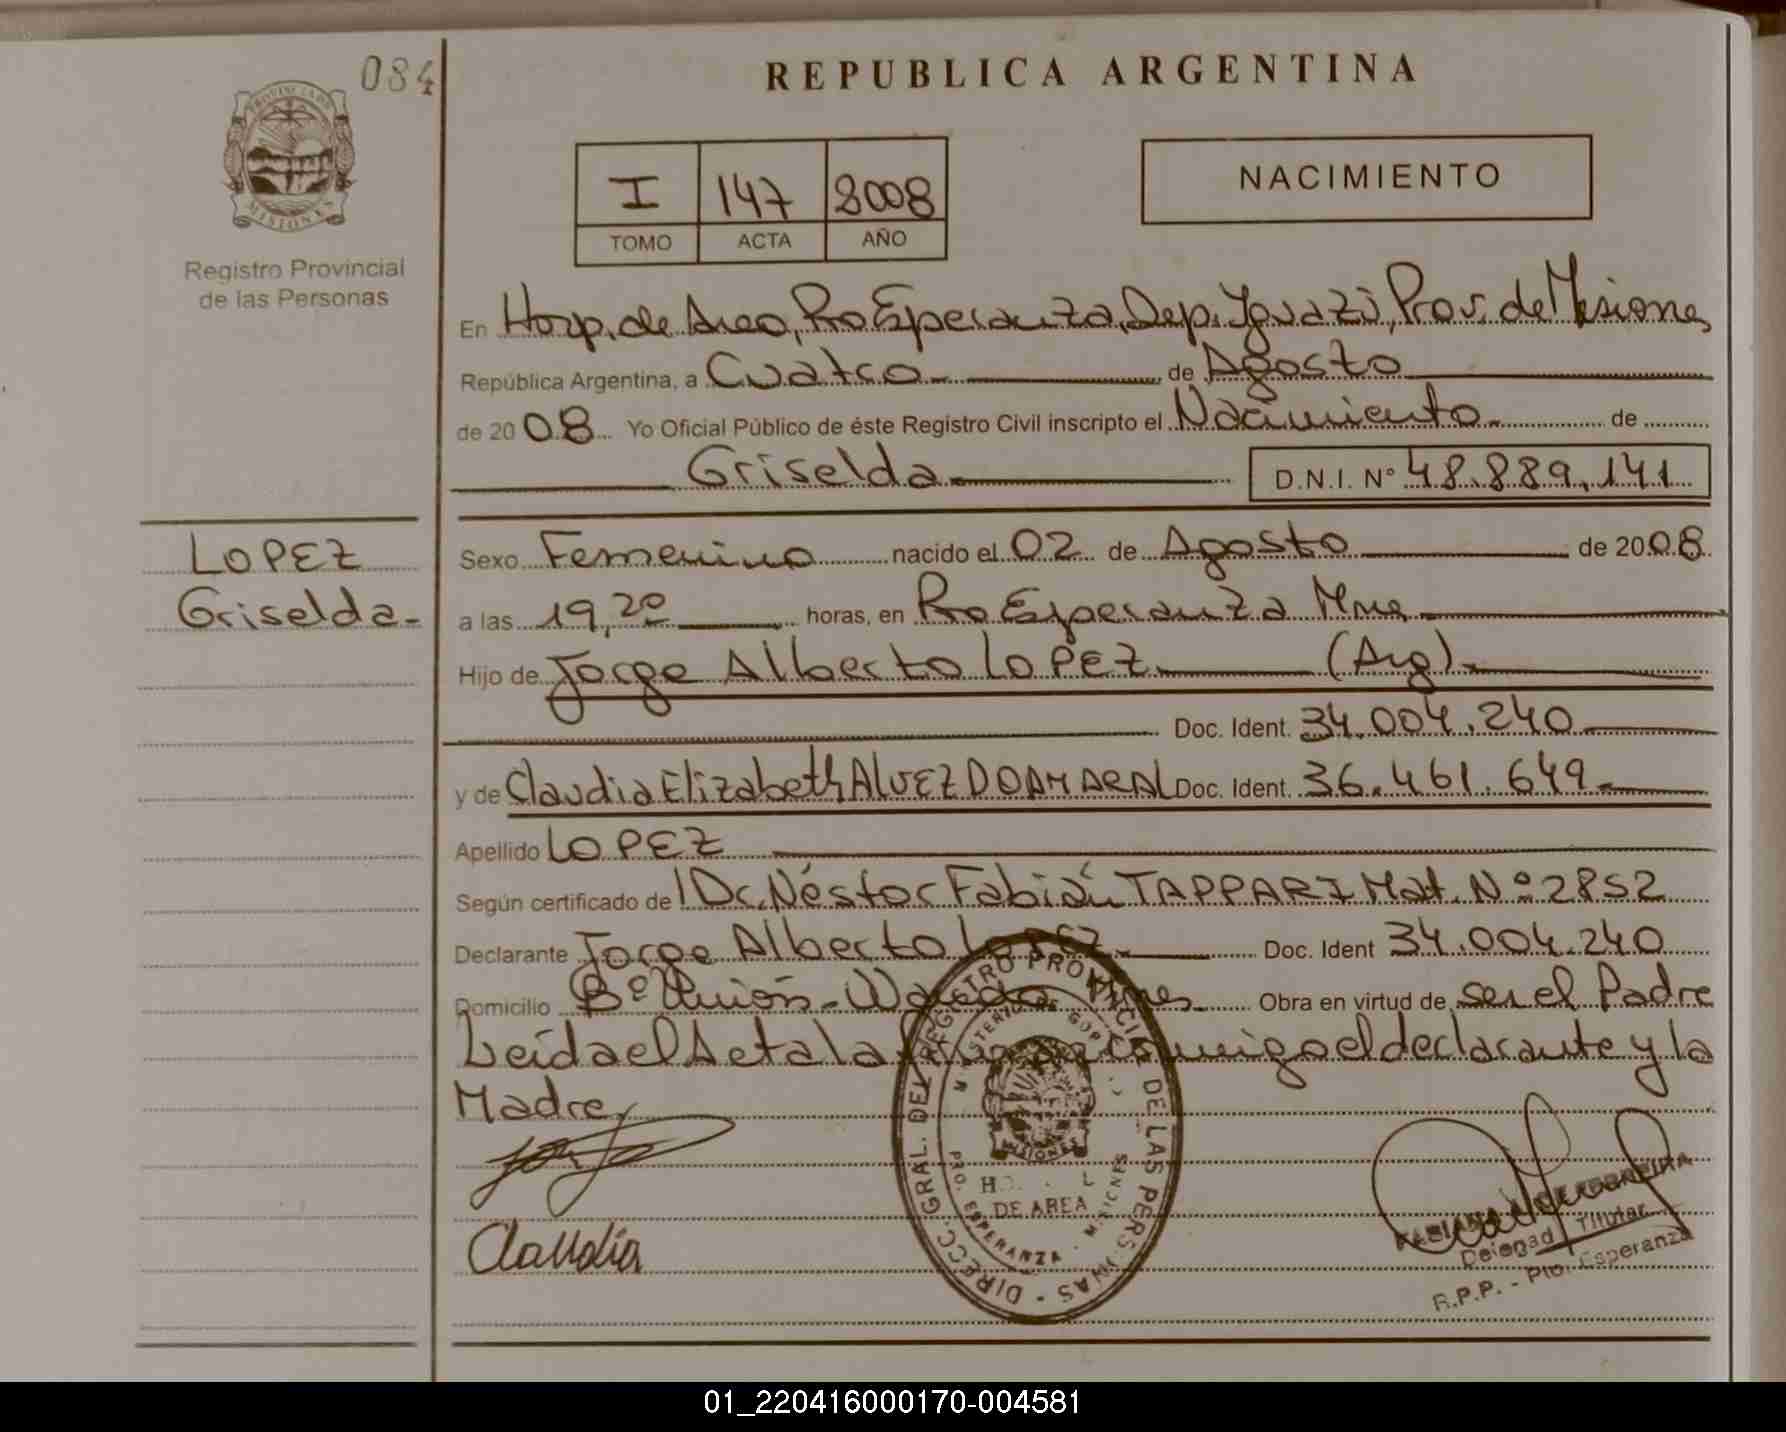 084
REPUBLICA ARGENTINA
PROVINCIA DE
MISIONES
Registro Provincial
de las Personas
I 147 2008
TOMO ACTA AÑO
NACIMIENTO
En Hosp. de Area, Pto Esperanza, Dep. Iguazú, Prov. de Misiones
República Argentina, a Cuatro de Agosto
de 20 08 Yo Oficial Público de éste Registro Civil inscripto el Nacimiento de
Griselda D.N.I. Nº 48.889.141
LOPEZ
Griselda
Sexo Femenino nacido el 02 de Agosto de 20 08
a las 19,20 horas, en Pto Esperanza Mnes
Hijo de Jorge Alberto LOPEZ (Arg)
Doc. Ident. 34.004.240
y de Claudia Elizabeth ALVEZ DO AMARAL Doc. Ident. 36.461.649
Apellido LOPEZ
Según certificado de Dr. Néstor Fabián TAPPARI Mat. Nº 2852
Declarante Jorge Alberto LOPEZ Doc. Ident 34.004.240
Domicilio Bº Unión - Wanda Mnes Obra en virtud de ser el Padre
Leída el Acta la conmigo el declarante y la
Madre
Claudia
DIRECC. GRAL. DEL REGISTRO PROVINCIAL DE LAS PERSONAS
MINISTERIO DE GOB
MISIONES
DE AREA
PTO. ESPERANZA - MISIONES
FABIANA FERREIRA
Delegad Titular
R.P.P. - Pto. Esperanza
01_220416000170-004581